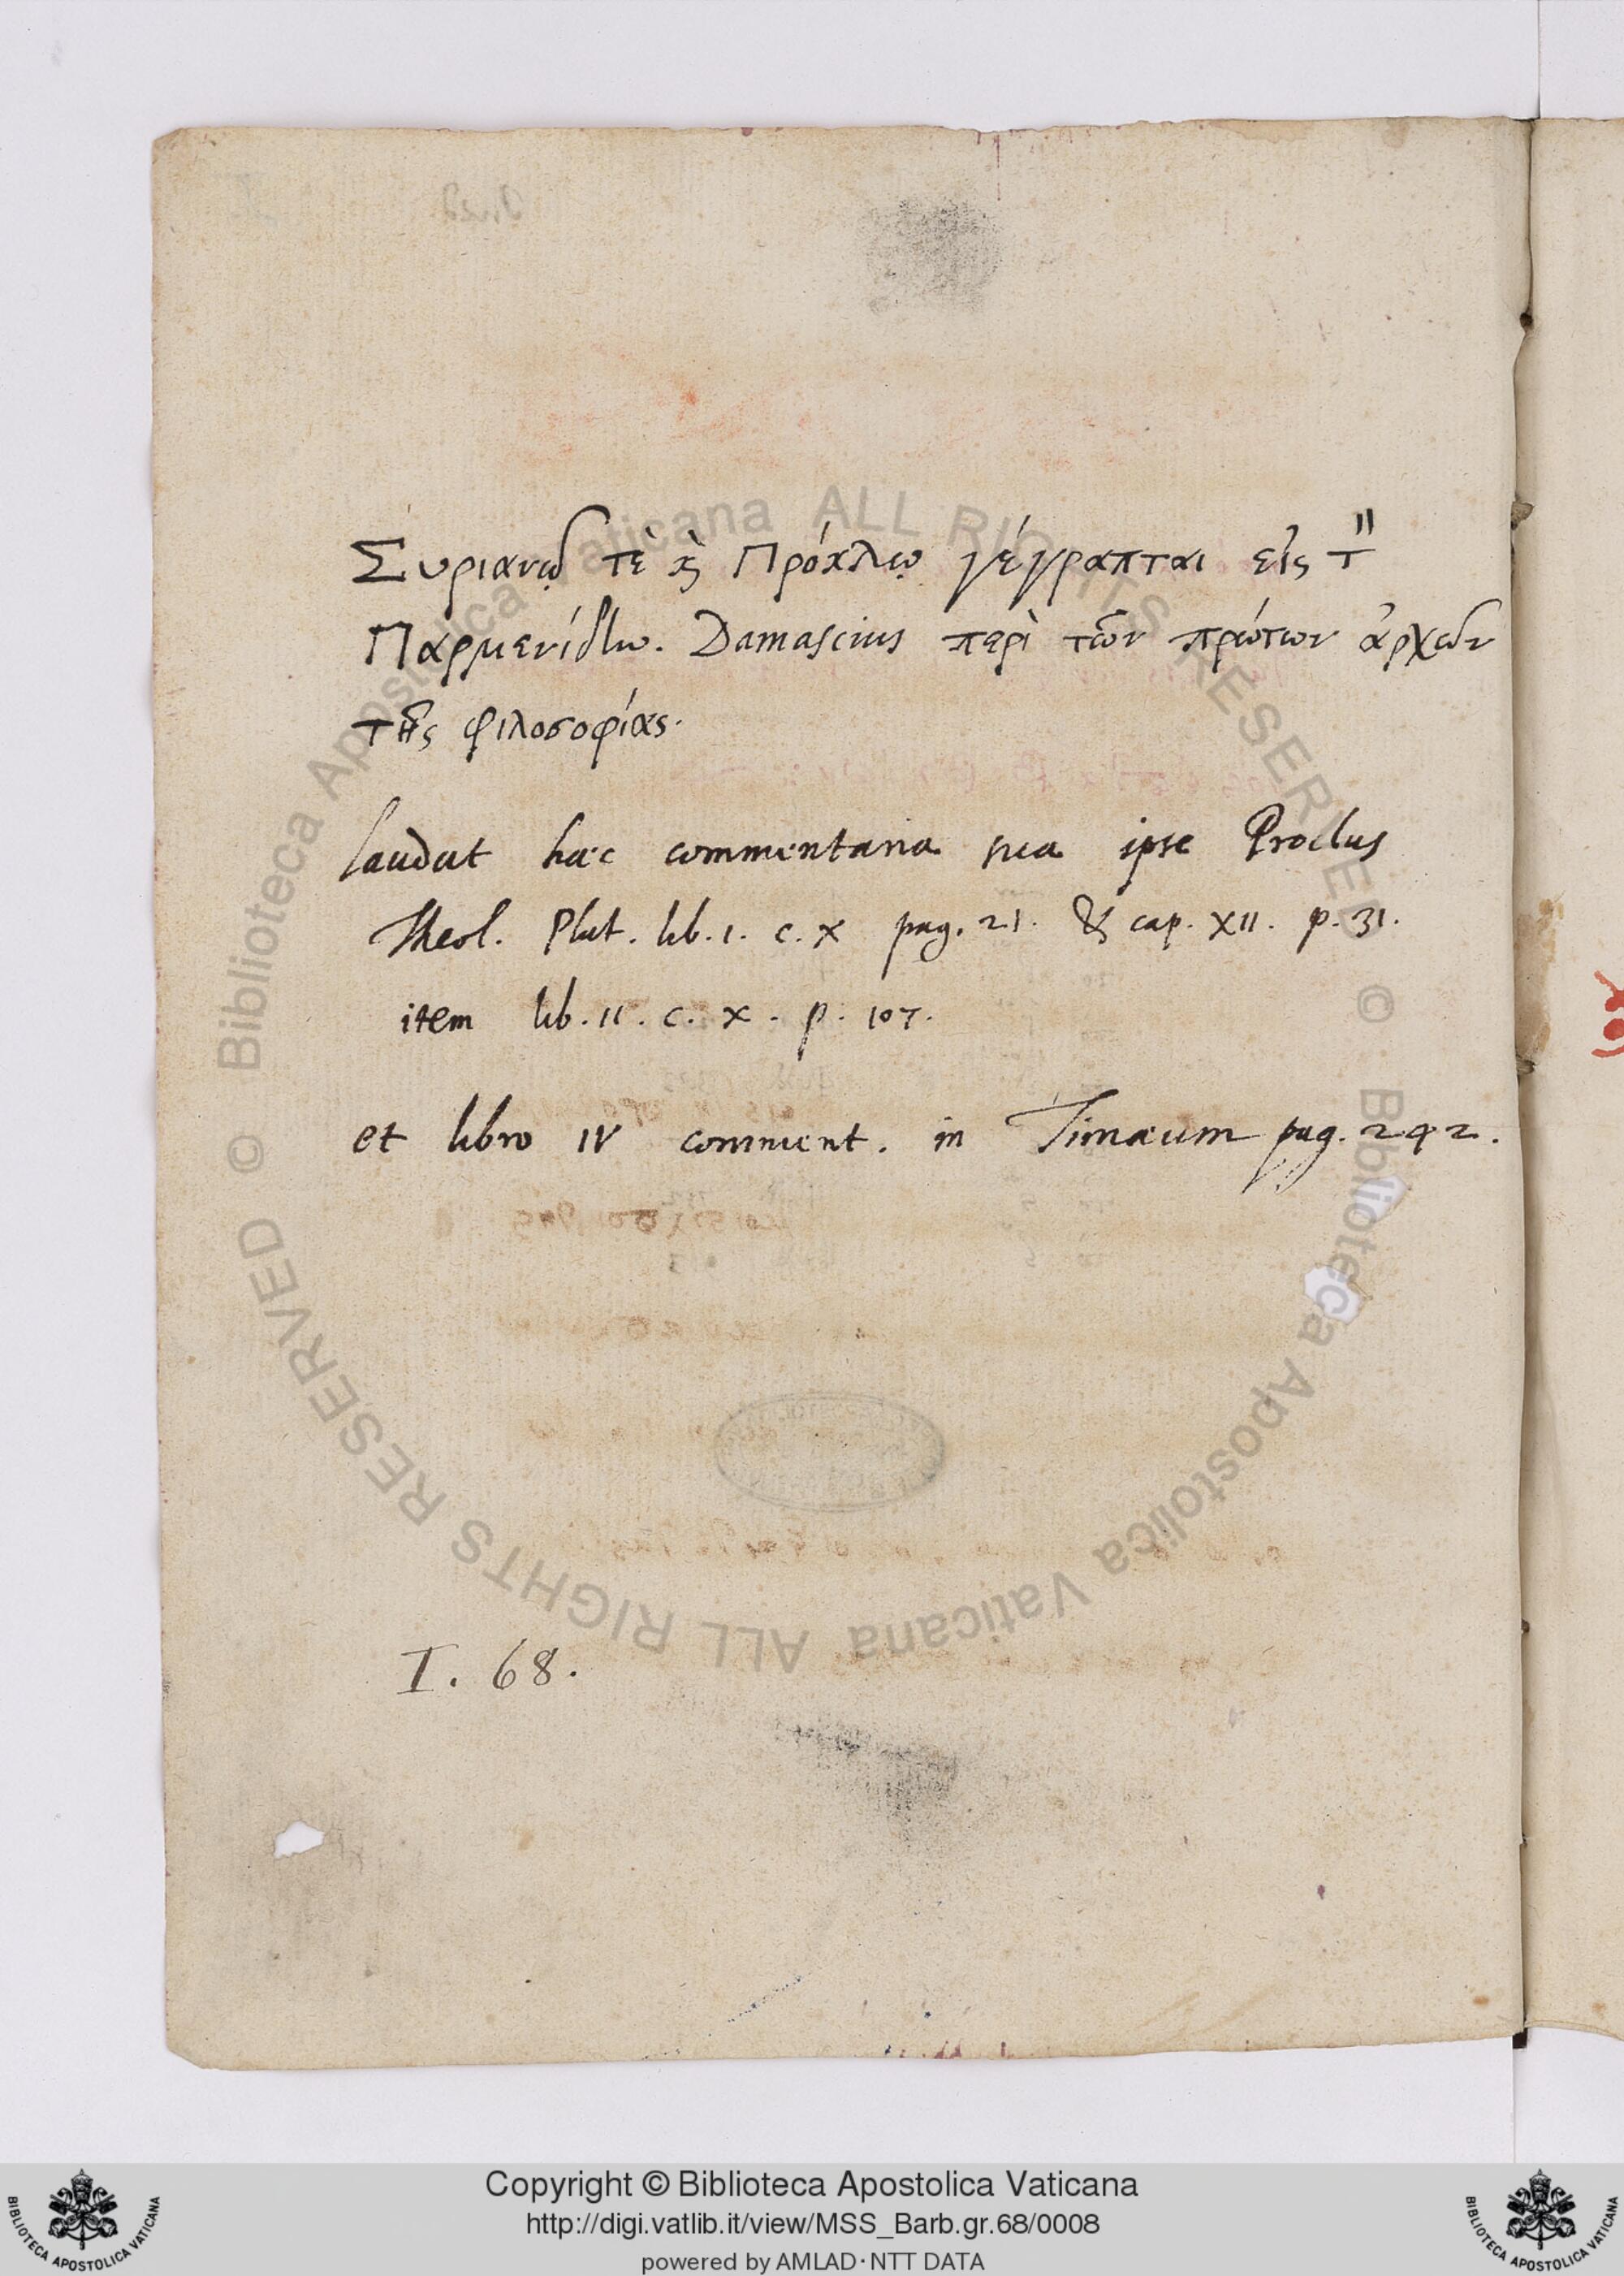 Συριανῷ τὲ ϗ Πρόκλῳ γέγραπται εἰς τ̎
Παρμενίδην. Damascius περὶ τῶν πρώτων ἀρχῶν
τῆς φιλοσοφίας.
laudat hæc commentaria sua ipse Proclus
Theol. Plat. lib. 1. c. x pag. 21. & cap. XII. p. 31.
item lib. II. c. x. p. 107.
et libro IV comment. in Timæum pag. 242.
I. 68.
© Biblioteca Apostolica Vaticana ALL RIGHTS RESERVED
© Biblioteca Apostolica Vaticana ALL RIGHTS RESERVED
Copyright © Biblioteca Apostolica Vaticana
http://digi.vatlib.it/view/MSS_Barb.gr.68/0008
powered by AMLAD·NTT DATA
BIBLIOTECA APOSTOLICA VATICANA
BIBLIOTECA APOSTOLICA VATICANA